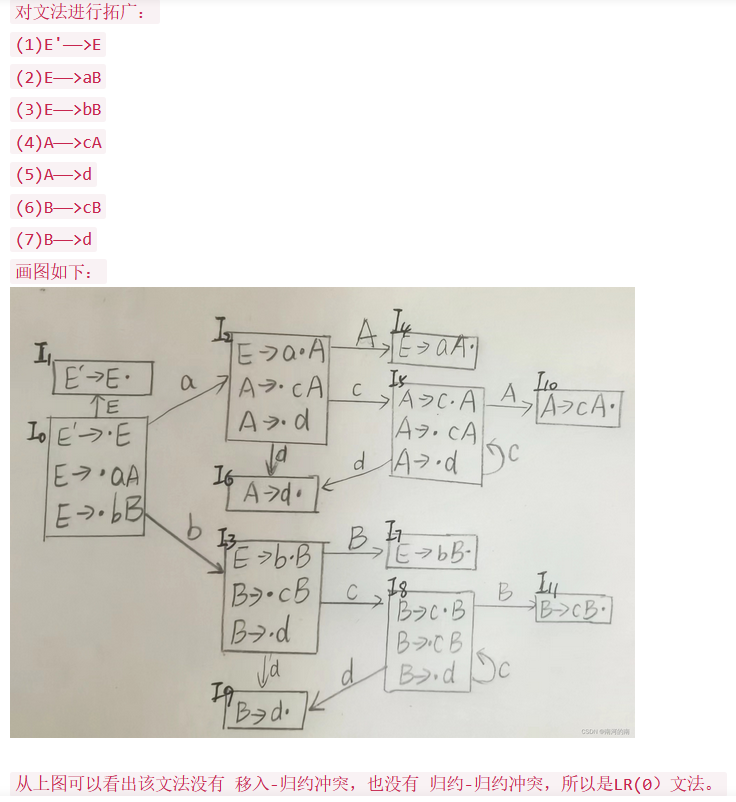 对文法进行拓广：
(1)E'——>E
(2)E——>aB
(3)E——>bB
(4)A——>cA
(5)A——>d
(6)B——>cB
(7)B——>d
画图如下：
I1
E'→E·
E
I0
E'→·E
E→·aA
E→·bB
a
I2
E→a·A
A→·cA
A→·d
A
I4
E→aA·
c
I5
A→c·A
A→·cA
A→·d
A
I10
A→cA·
c
d
d
I6
A→d·
b
I3
E→b·B
B→·cB
B→·d
B
I7
E→bB·
c
I8
B→c·B
B→·cB
B→·d
B
I11
B→cB·
c
d
d
I9
B→d·
从上图可以看出该文法没有 移入-归约冲突，也没有 归约-归约冲突，所以是LR(0）文法。